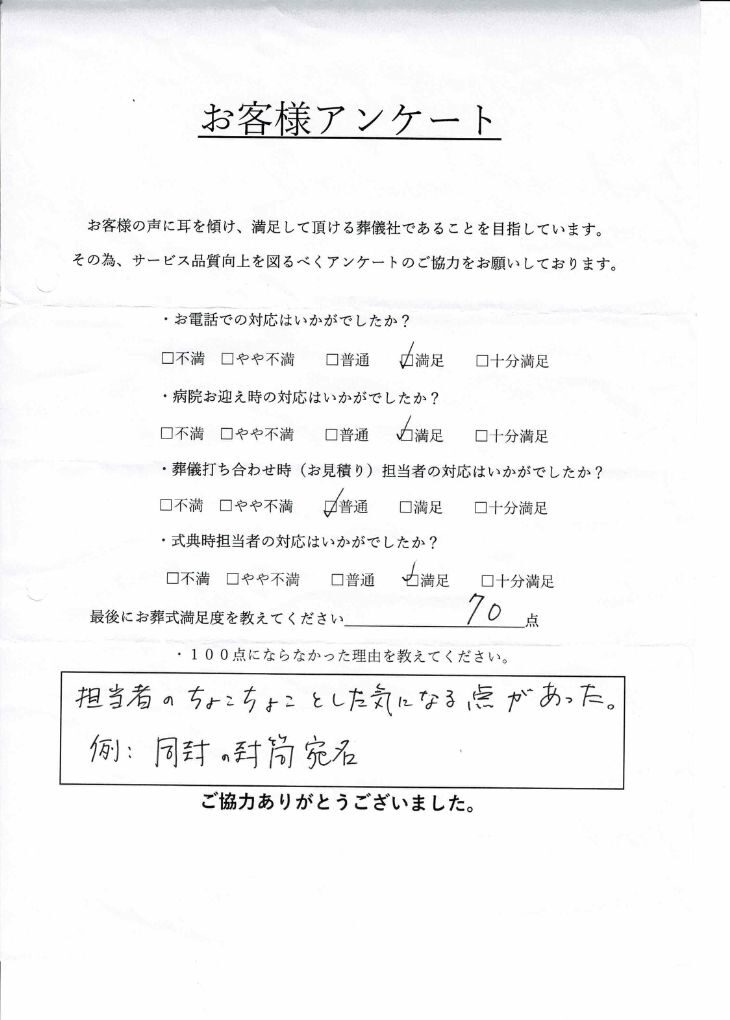 お客様アンケート
お客様の声に耳を傾け、満足して頂ける葬儀社であることを目指しています。
その為、サービス品質向上を図るべくアンケートのご協力をお願いしております。
・お電話での対応はいかがでしたか？
□不満 □やや不満 □普通 ☑満足 □十分満足
・病院お迎え時の対応はいかがでしたか？
□不満 □やや不満 □普通 ☑満足 □十分満足
・葬儀打ち合わせ時（お見積り）担当者の対応はいかがでしたか？
□不満 □やや不満 ☑普通 □満足 □十分満足
・式典時担当者の対応はいかがでしたか？
□不満 □やや不満 □普通 ☑満足 □十分満足
最後にお葬式満足度を教えてください 70 点
・１００点にならなかった理由を教えてください。
担当者のちょこちょことした気になる点があった。
例：同封の封筒宛名
ご協力ありがとうございました。